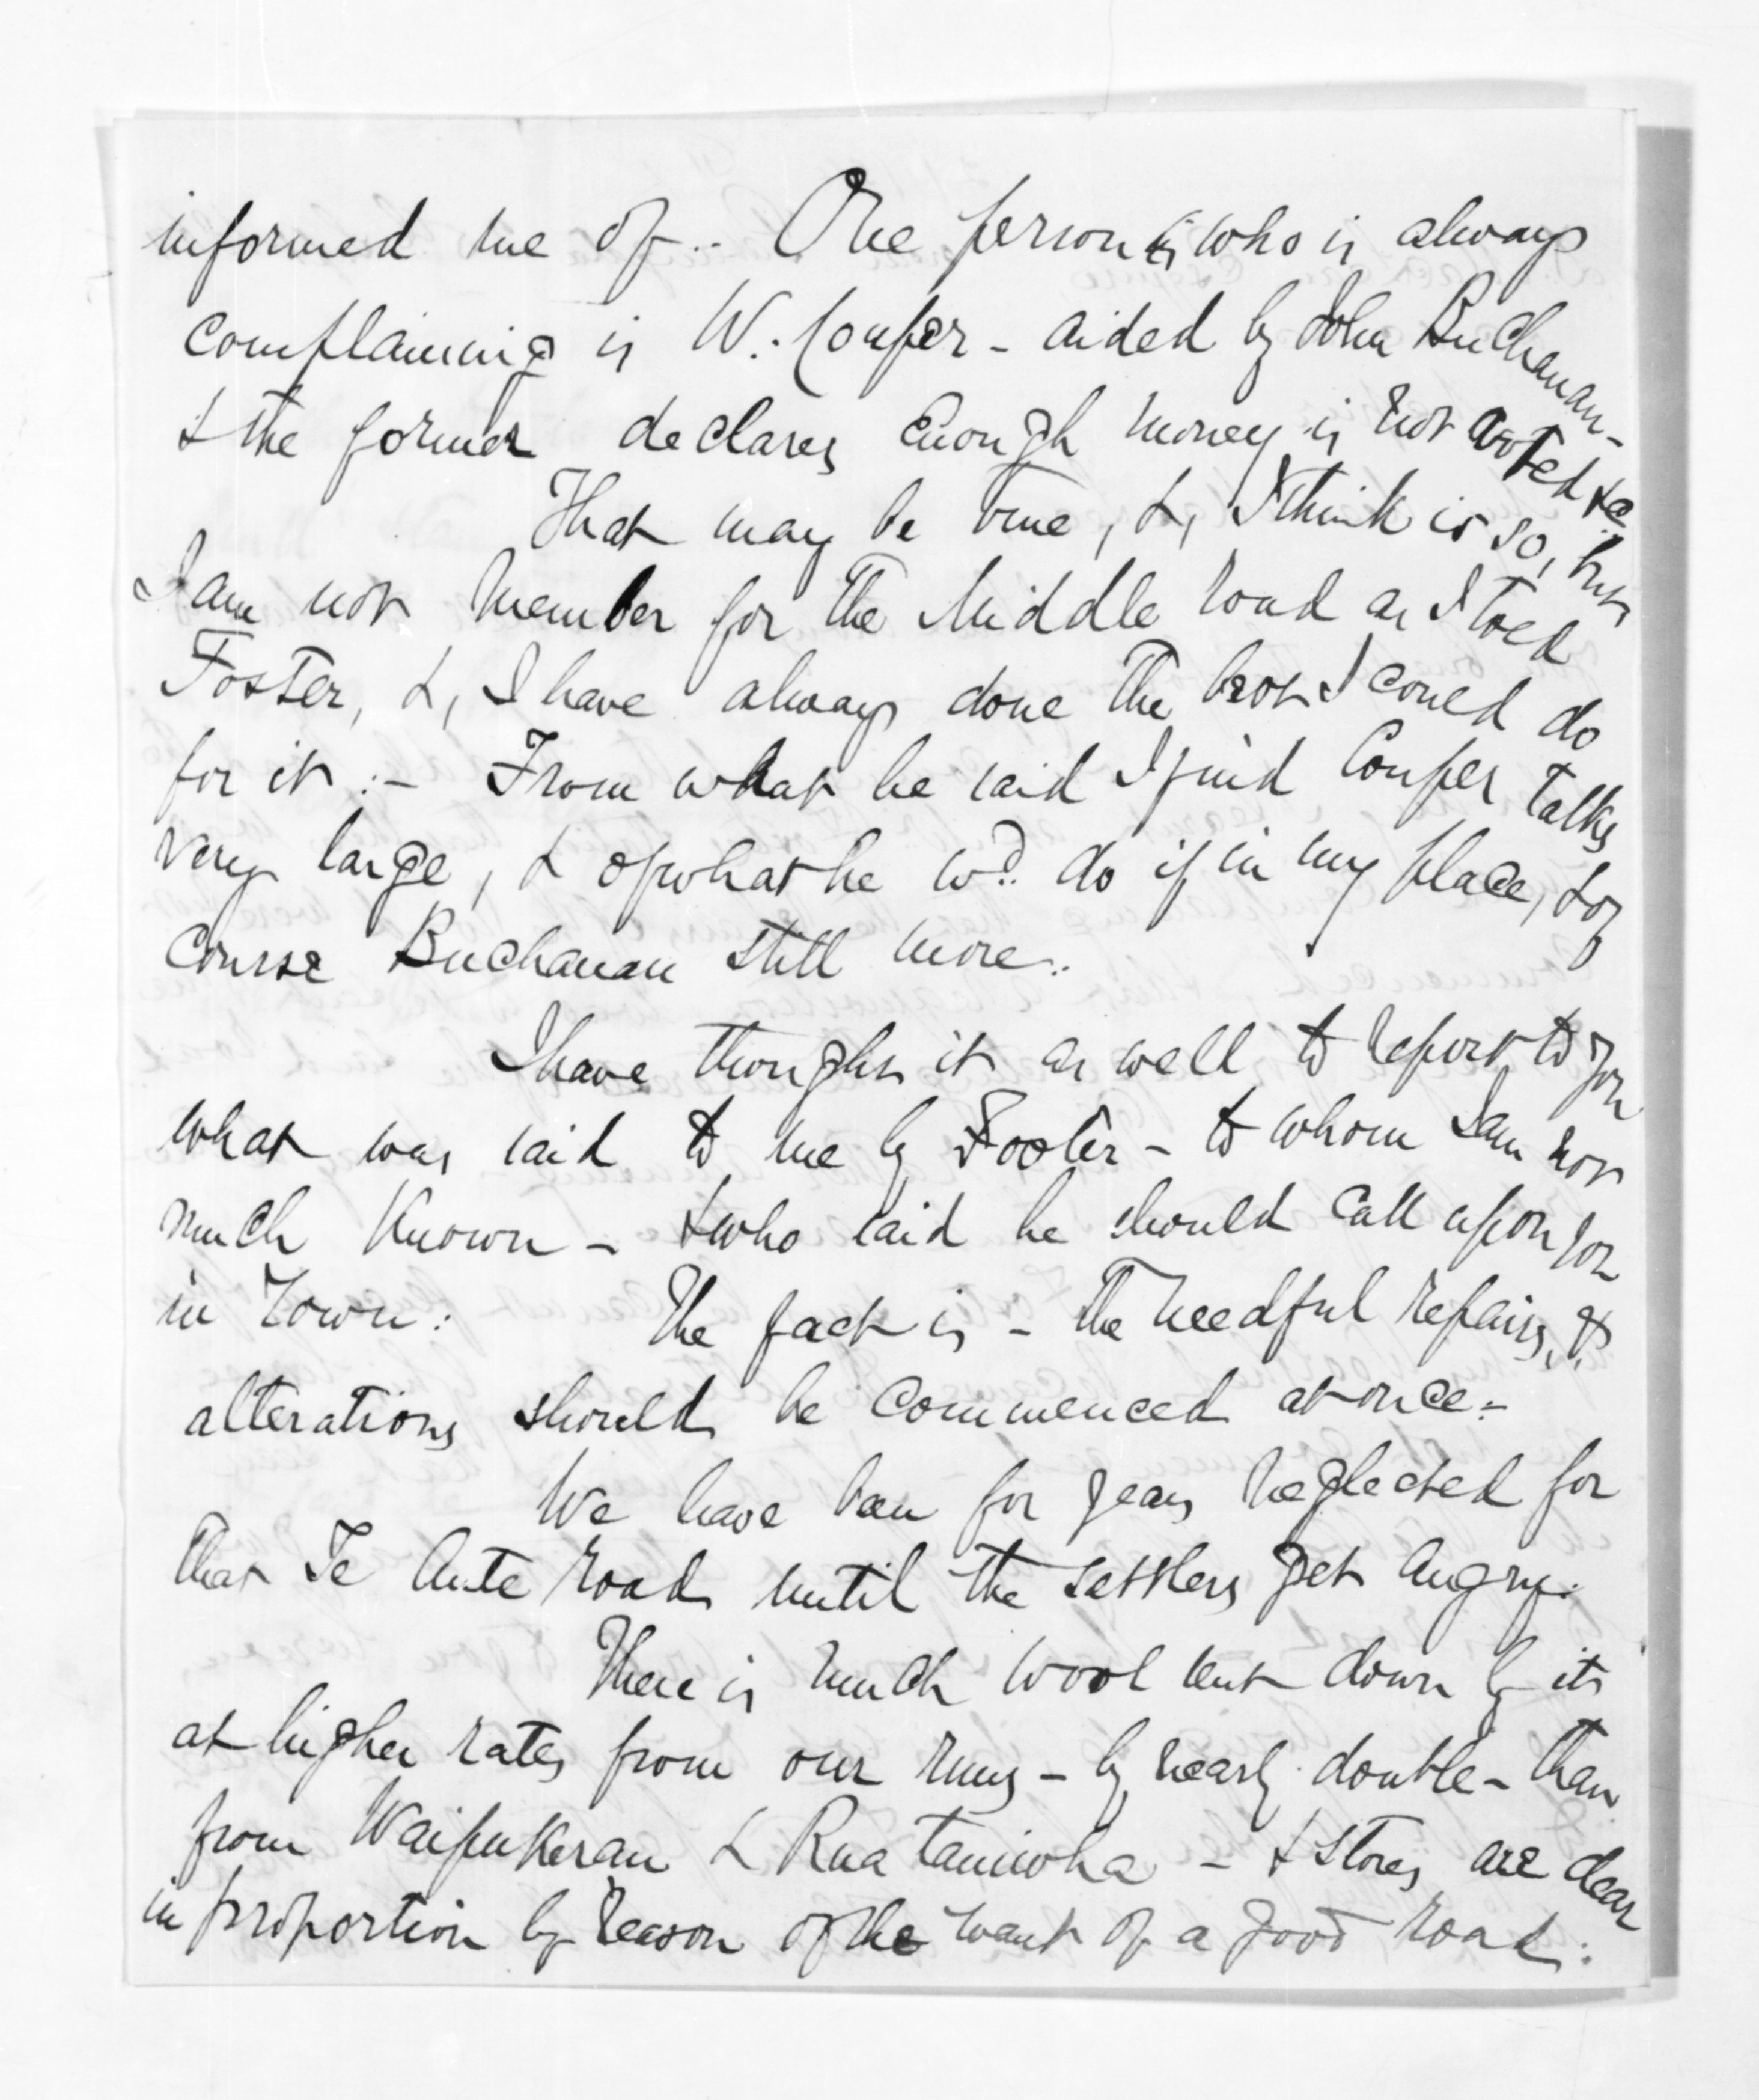 informed me of.. One person who is always
complaining is W. Couper - aided by John Buchanan -
& the former declares enough money is not voted &c
That may be true, &, I think is so, but
I am not Member for the Middle road as I told
Foster, &, I have always done the best I could do
for it :- From what he said I find Couper talks
very large, & of what he wd. do if in my place, & of
course Buchanan still more..
I have thought it as well to report to you
what was said to me by Foster - to whom I am not
much known - & who said he should call upon you
in Town: The fact is - the needful repairs, &
alterations should be commenced at once -
We have been for years neglected for
that Te Aute road until the settlers get angry.
There is much wool sent down by it
at higher rates from our runs - by nearly double - than
from Waipukurau & Rua taniwha - & stores are dear
in proportion by reason of the want of a good road: